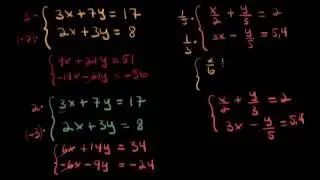 3· 3x+7y=17
2x+3y=8
9x+21y=51
-14x-21y=-56
2· 3x+7y=17
(-3)· 2x+3y=8
6x+14y=34
-6x-9y=-24
x/2+y/3=2
3x-y/5=5,4
x/6
x/2+y/3=2
3x-y/5=5,4